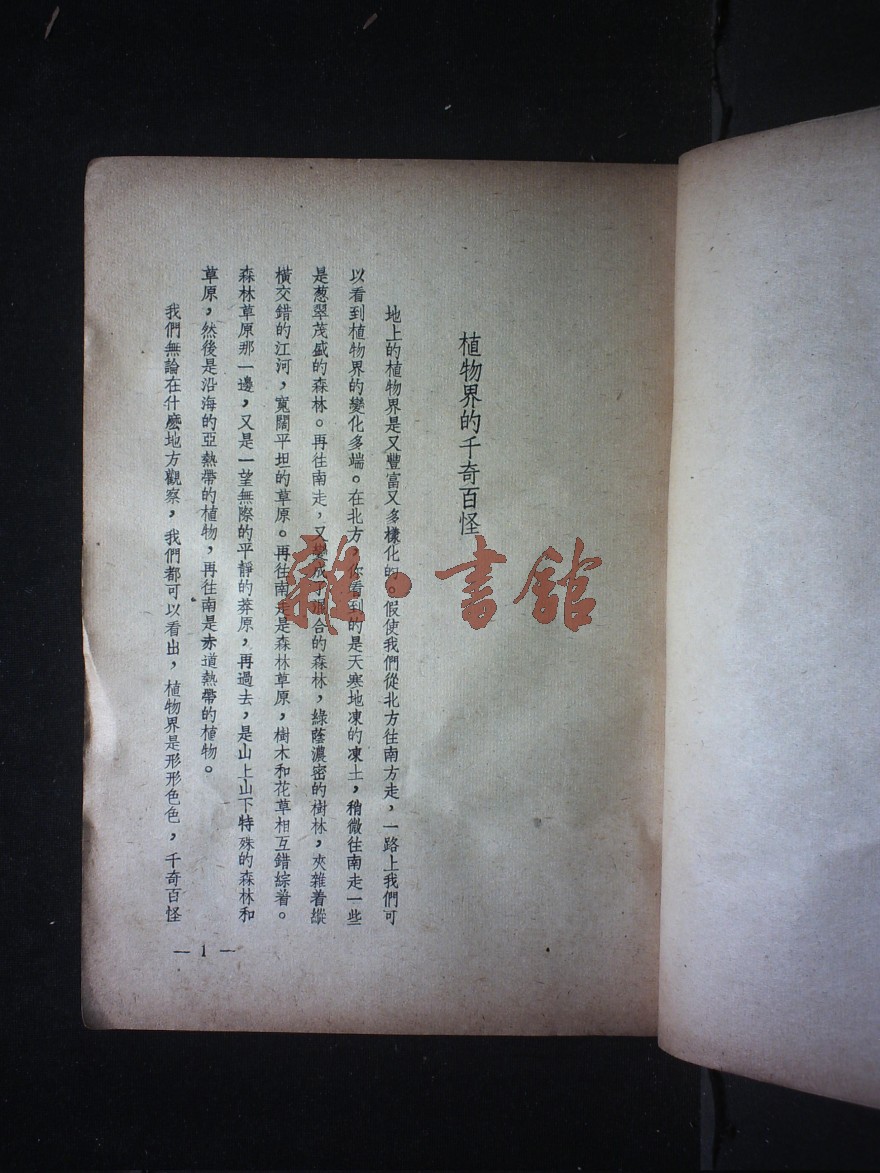 植物界的千奇百怪
地上的植物界是又豐富又多樣化的。假使我們從北方往南方走，一路上我們可
以看到植物界的變化多端。在北方，你看到的是天寒地凍的凍土，稍微往南走一些
是葱翠茂盛的森林。再往南走，又變成了混合的森林，綠蔭濃密的樹林，夾雜着縱
橫交錯的江河，寬闊平坦的草原。再往南走是森林草原，樹木和花草相互錯綜着。
森林草原那一邊，又是一望無際的平靜的莽原，再過去，是山上山下特殊的森林和
草原，然後是沿海的亞熱帶的植物，再往南是赤道熱帶的植物。
我們無論在什麼地方觀察，我們都可以看出，植物界是形形色色，千奇百怪
— 1 —
雜·書館